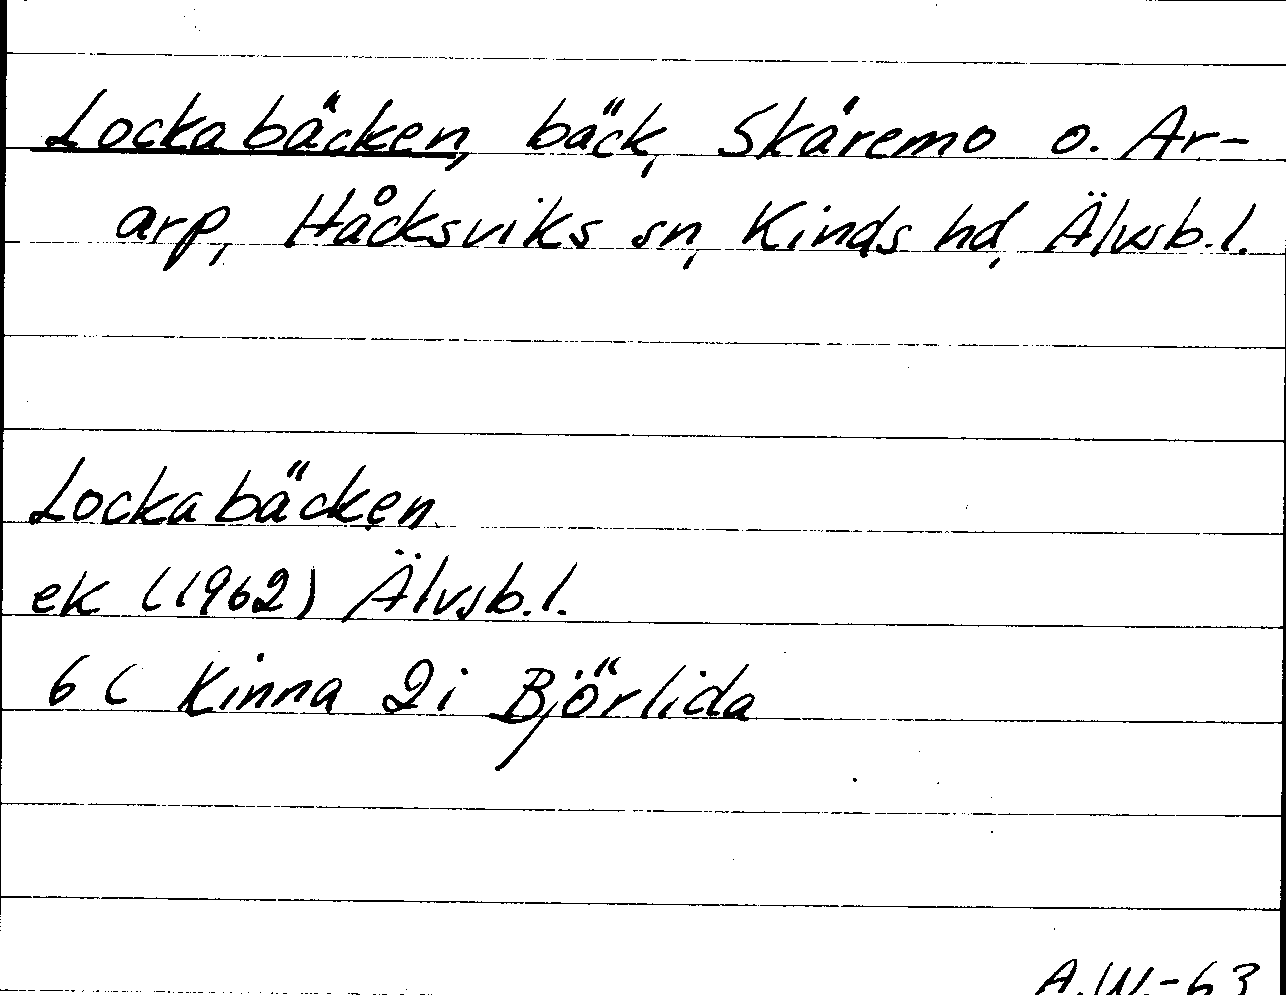 Lockabäcken, bäck, Skäremo o. Ar-
arp, Håcksviks sn, Kinds hd, Älvsb.l.
Lockabäcken
ek (1962) Älvsb.l.
6 C Kinna 2i Björlida
A.W.-63